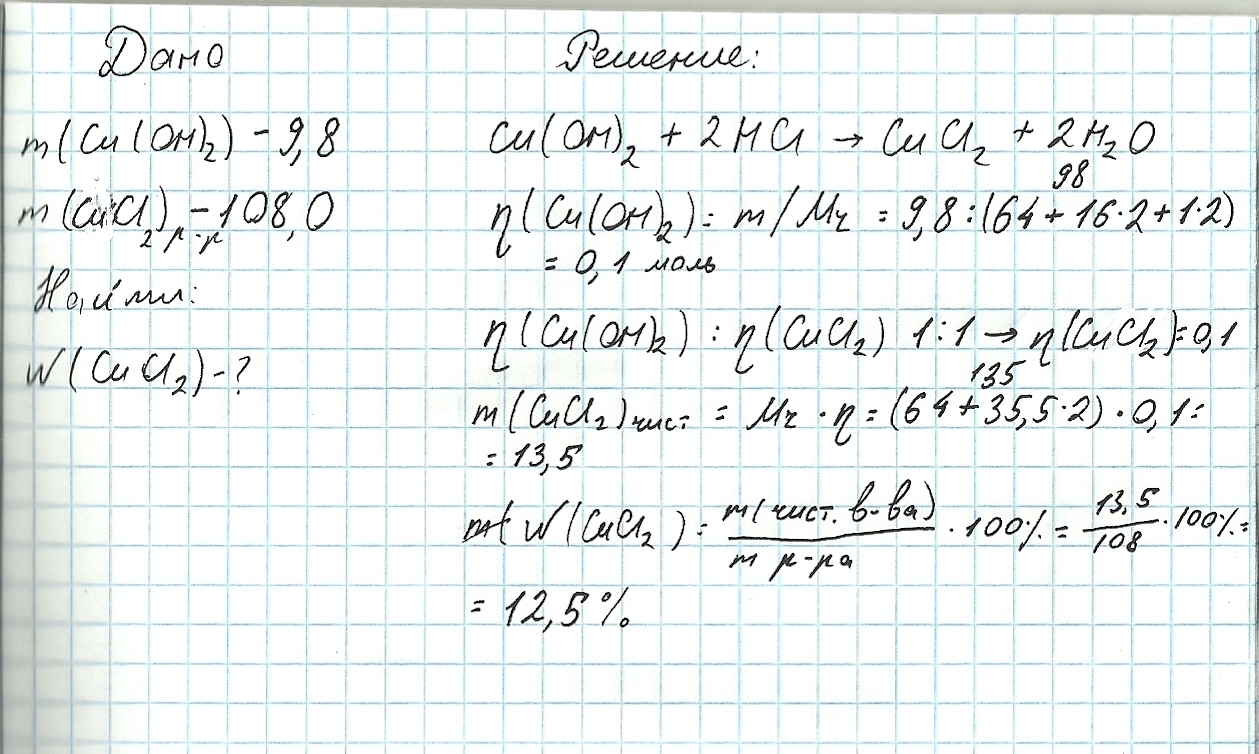 Дано
m(Cu(OH)₂) - 9,8
m(CuCl₂)р-р - 108,0
Найти:
W(CuCl₂) - ?
Решение:
Cu(OH)₂ + 2HCl → CuCl₂ + 2H₂O
98
η(Cu(OH)₂) = m/Mr = 9,8:(64+16·2+1·2)
= 0,1 моль
η(Cu(OH)₂) : η(CuCl₂) 1:1 → η(CuCl₂)=0,1
135
m(CuCl₂)чист = Mr · η = (64+35,5·2) · 0,1 =
= 13,5
W(CuCl₂) = m(чист. в-ва) / m р-ра · 100% = 13,5 / 108 · 100% =
= 12,5%